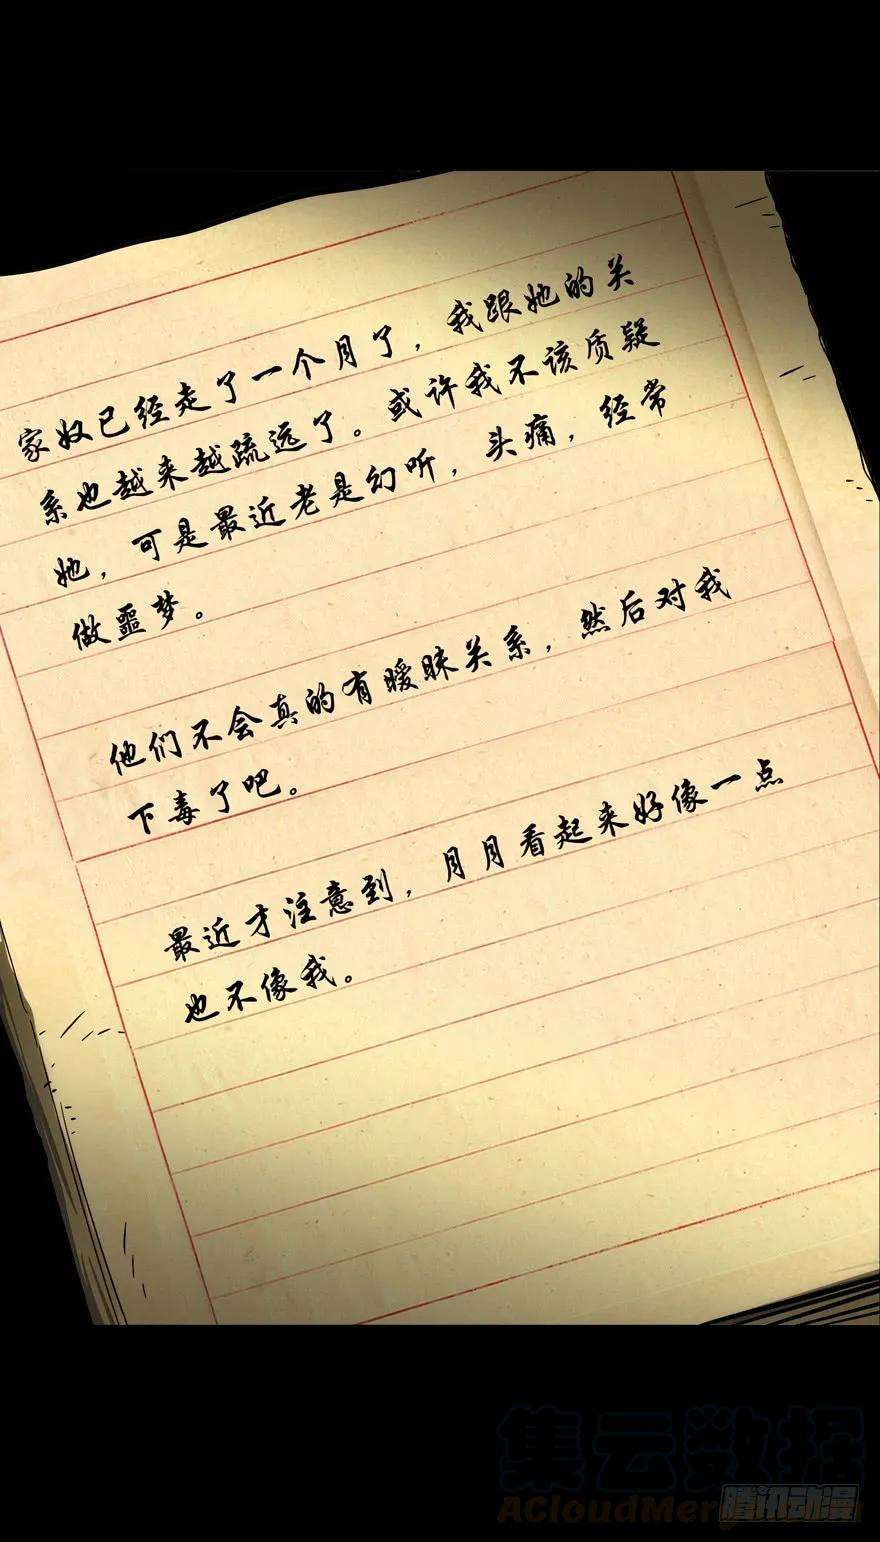 家奴已经走了一个月了，我跟她的关
系也越来越疏远了。或许我不该质疑
她，可是最近老是幻听，头痛，经常
做噩梦。
他们不会真的有暧昧关系，然后对我
下毒了吧。
最近才注意到，月月看起来好像一点
也不像我。
集云数据
ACloudMer
腾讯动漫